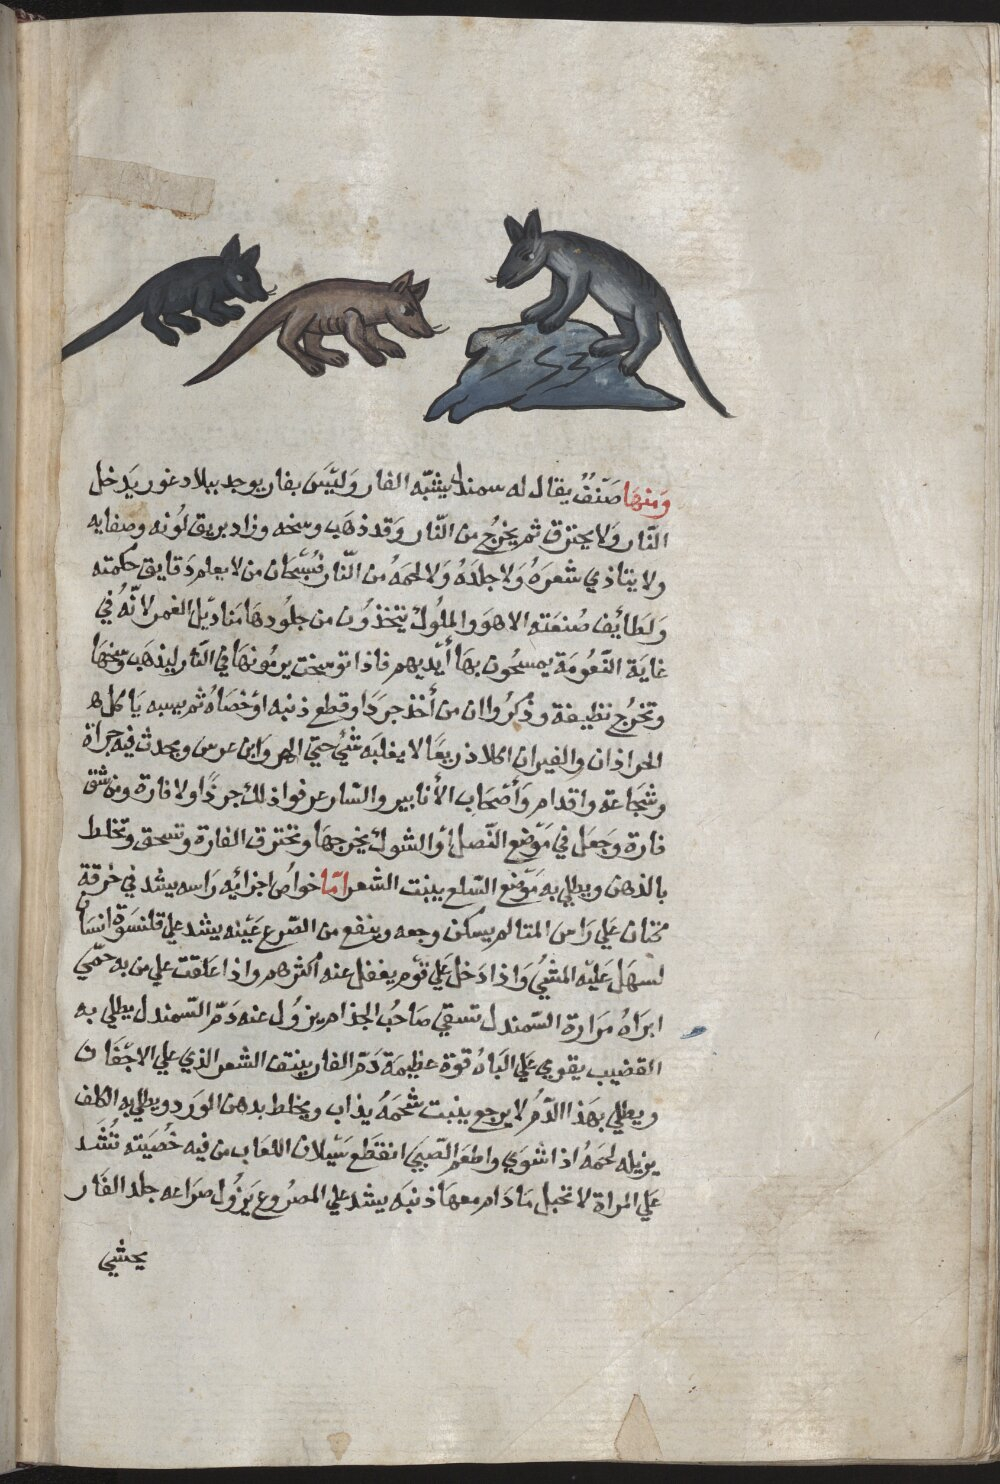 ومنها صنف يقال له سمندل يشبه الفار وليس بفار يوجد ببلاد غور يدخل
النار ولا يحترق ثم يخرج من النار وقد ذهب وسخه وزاد بريق لونه وصفايه
ولا يتاذي شعره ولا جلده ولا لحمه من النار فسبحان من لا يعلم دقايق حكمته
ولطائف صنعته الا هو والملوك يتخذون من جلودها مناديل الغمر لانه في
غاية النعومة يمسحون بها أيديهم فاذا توسخت يرمونها في النار ليذهب وسخها
وتخرج نظيفة وذكروا ان من أخذ جردا وقطع ذنبه او خصاه ثم يسيبه ياكل
الجراذان والفيران اكلا ذريعا لا يغلبه شيء حتي الهر وابن عرس ويحدث فيه جراة
وشجاعة واقدام وأصحاب الأنابير والسار عرفوا ذلك جرذا ولا فارة ومن شق
فارة وجعل في موضع النصل أو الشوك يخرجها وتحترق الفارة وتسحق وتخلط
بالدهن ويطلي به موضع السلع ينبت الشعر اما خواص اجزائه راسه يشد في خرقة
كتان علي راس المتالم يسكن وجعه وينفع من الصرع عينه يشد علي قلنسوة انسان
لسهل عليه المشي واذا دخل علي قوم يغفل عنه أكثرهم واذا علقت علي من به حمي
ابراه مرارة السمندل تسقي صاحب الجذام يزول عنه دم السمندل يطلي به
القضيب يقوي علي الباه قوة عظيمة دم الفار ينتف الشعر الذي علي الاجفان
ويطلي بهذا الدم لا يرجع ينبت شحمه يذاب ويخلط بدهن الورد ويطلي به الكلف
يزيله لحمه اذا شوي واطعم الصبي انقطع سيلان اللعاب من فيه خصيته تشد
علي المراة لا تحبل ما دام معها ذنبه يشد علي المصروع يزول صراعه جلد الفار
يحشي